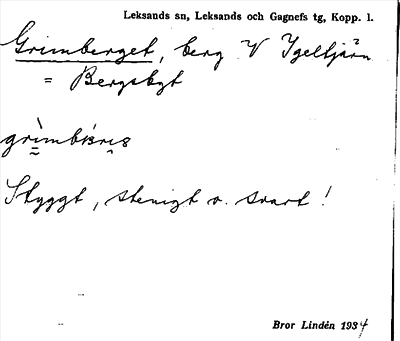 Leksands sn, Leksands och Gagnefs tg, Kopp. l.
Grimberget, berg V Igeltjärn
= Bergsbyt
grìmbɪ́srɪs
Styggt, stenigt o. svart!
Bror Lindén 1934